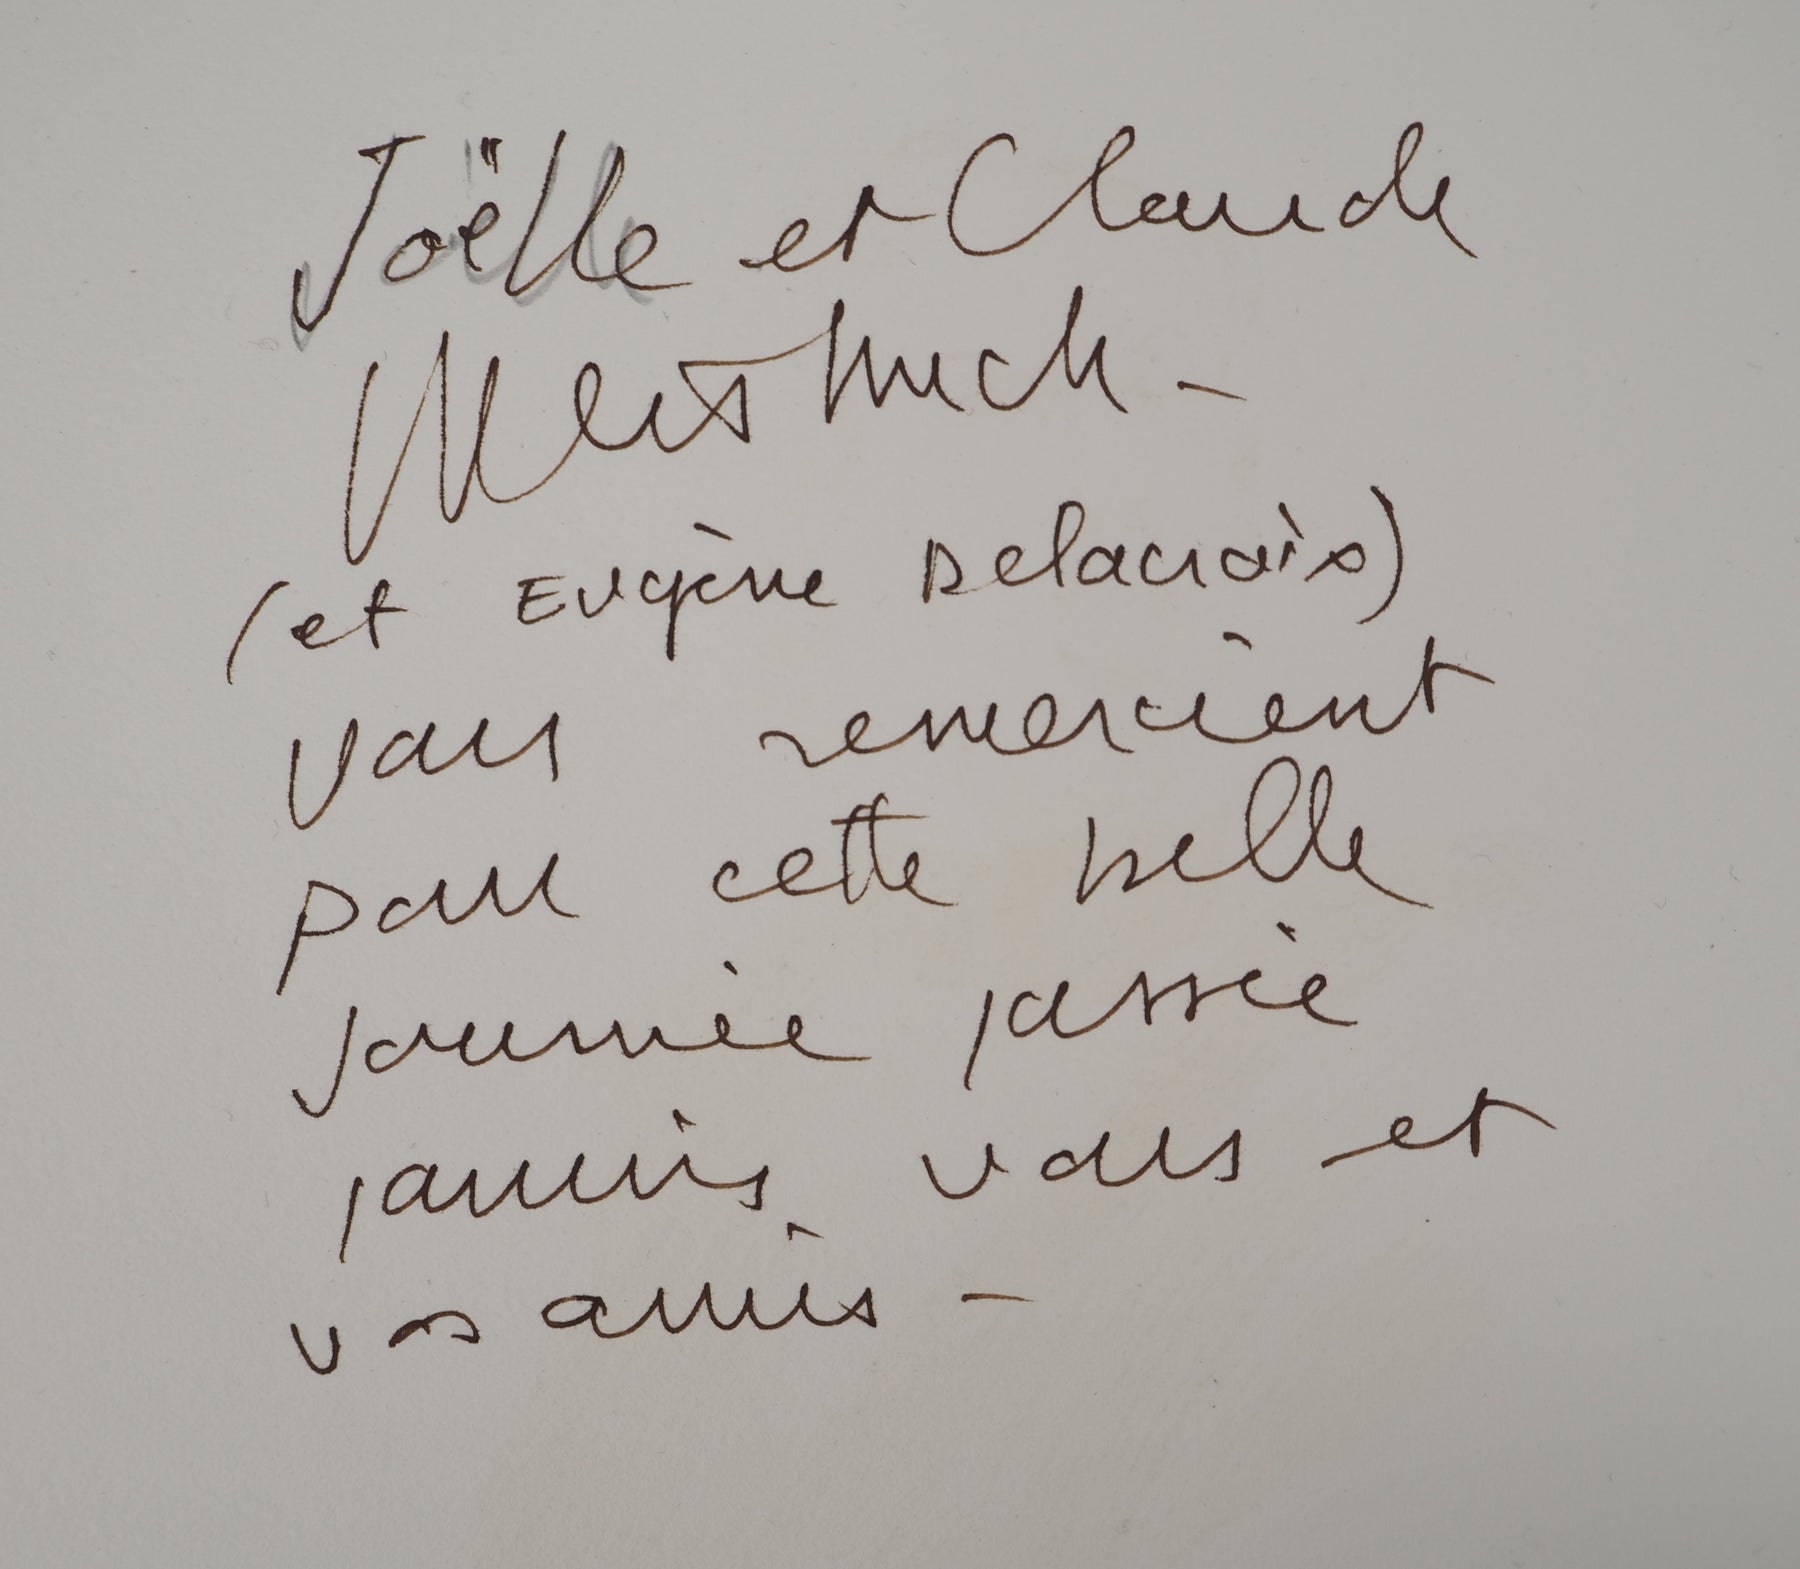 Joëlle et Claude
Weisbuch -
(et Eugène Delacroix)
vous remercient
pour cette belle
journée passée
parmis vous et
vos amis -